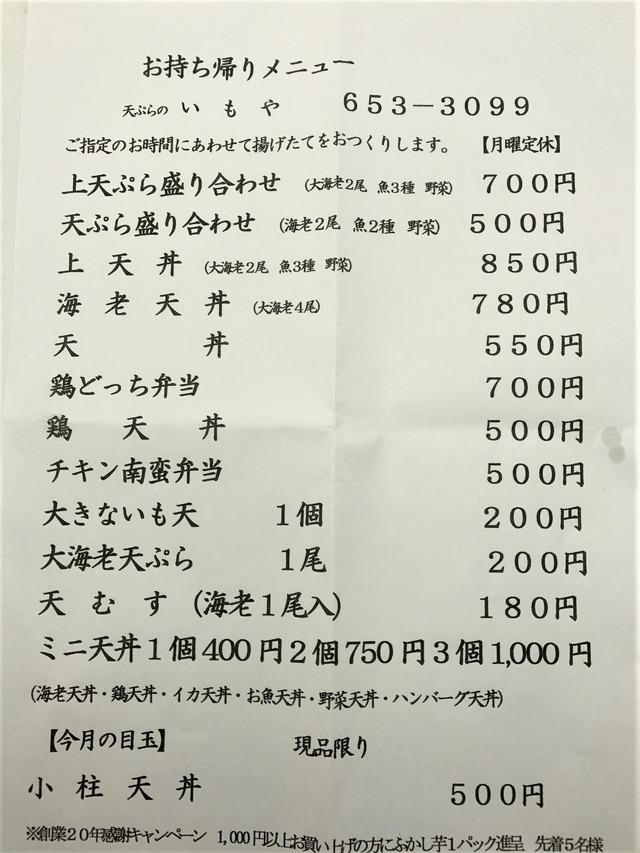 お持ち帰りメニュー
天ぷらの いもや 653-3099
ご指定のお時間にあわせて揚げたてをおつくりします。 【月曜定休】
上天ぷら盛り合わせ (大海老2尾 魚3種 野菜) 700円
天ぷら盛り合わせ (海老2尾 魚2種 野菜) 500円
上天丼 (大海老2尾 魚3種 野菜) 850円
海老天丼 (大海老4尾) 780円
天丼 550円
鶏どっち弁当 700円
鶏天丼 500円
チキン南蛮弁当 500円
大きないも天 1個 200円
大海老天ぷら 1尾 200円
天むす (海老1尾入) 180円
ミニ天丼1個400円2個750円3個1,000円
(海老天丼・鶏天丼・イカ天丼・お魚天丼・野菜天丼・ハンバーグ天丼)
【今月の目玉】 現品限り
小柱天丼 500円
※創業20年感謝キャンペーン 1,000円以上お買い上げの方にふかし芋1パック進呈 先着5名様